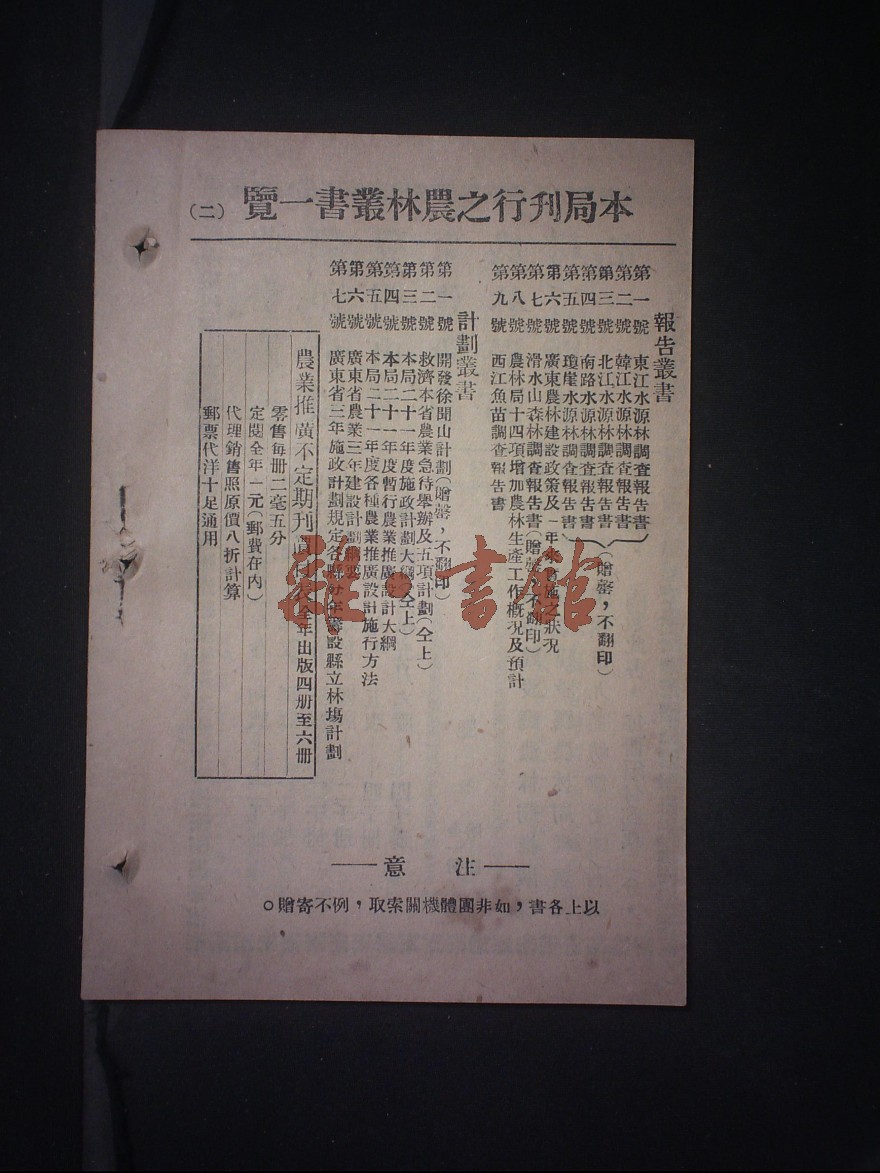 本局刊行之農林叢書一覽（二）
報告叢書
第一號 東江水源林調查報告書
第二號 韓江水源林調查報告書
第三號 北江水源林調查報告書
第四號 南路水源林調查報告書
第五號 瓊崖水源林調查報告書
（贈罄，不翻印）
第六號 廣東農林建設政策及一年來實施之狀況
第七號 滑水山森林調查報告書（贈罄，不翻印）
第八號 農林局十四項增加農林生產工作概況及預計
第九號 西江魚苗調查報告書
計劃叢書
第一號 開發徐聞山計劃（贈罄，不翻印）
第二號 救濟本省農業急待舉辦及五項計劃（仝上）
第三號 本局二十一年度施政計劃大綱（仝上）
第四號 本局二十一年度暫行農業推廣設計大綱
第五號 本局二十一年度各種農業推廣設計施行方法
第六號 廣東省農業三年建設計劃
第七號 廣東省三年施政計劃規定各縣分年籌設縣立林場計劃
農業推廣不定期刊價目表 全年出版四册至六册
零售每册二毫五分
定閱全年一元（郵費在內）
代理銷售照原價八折計算
郵票代洋十足通用
注意
以上各書，如非團體機關索取，例不寄贈。
雜·書館